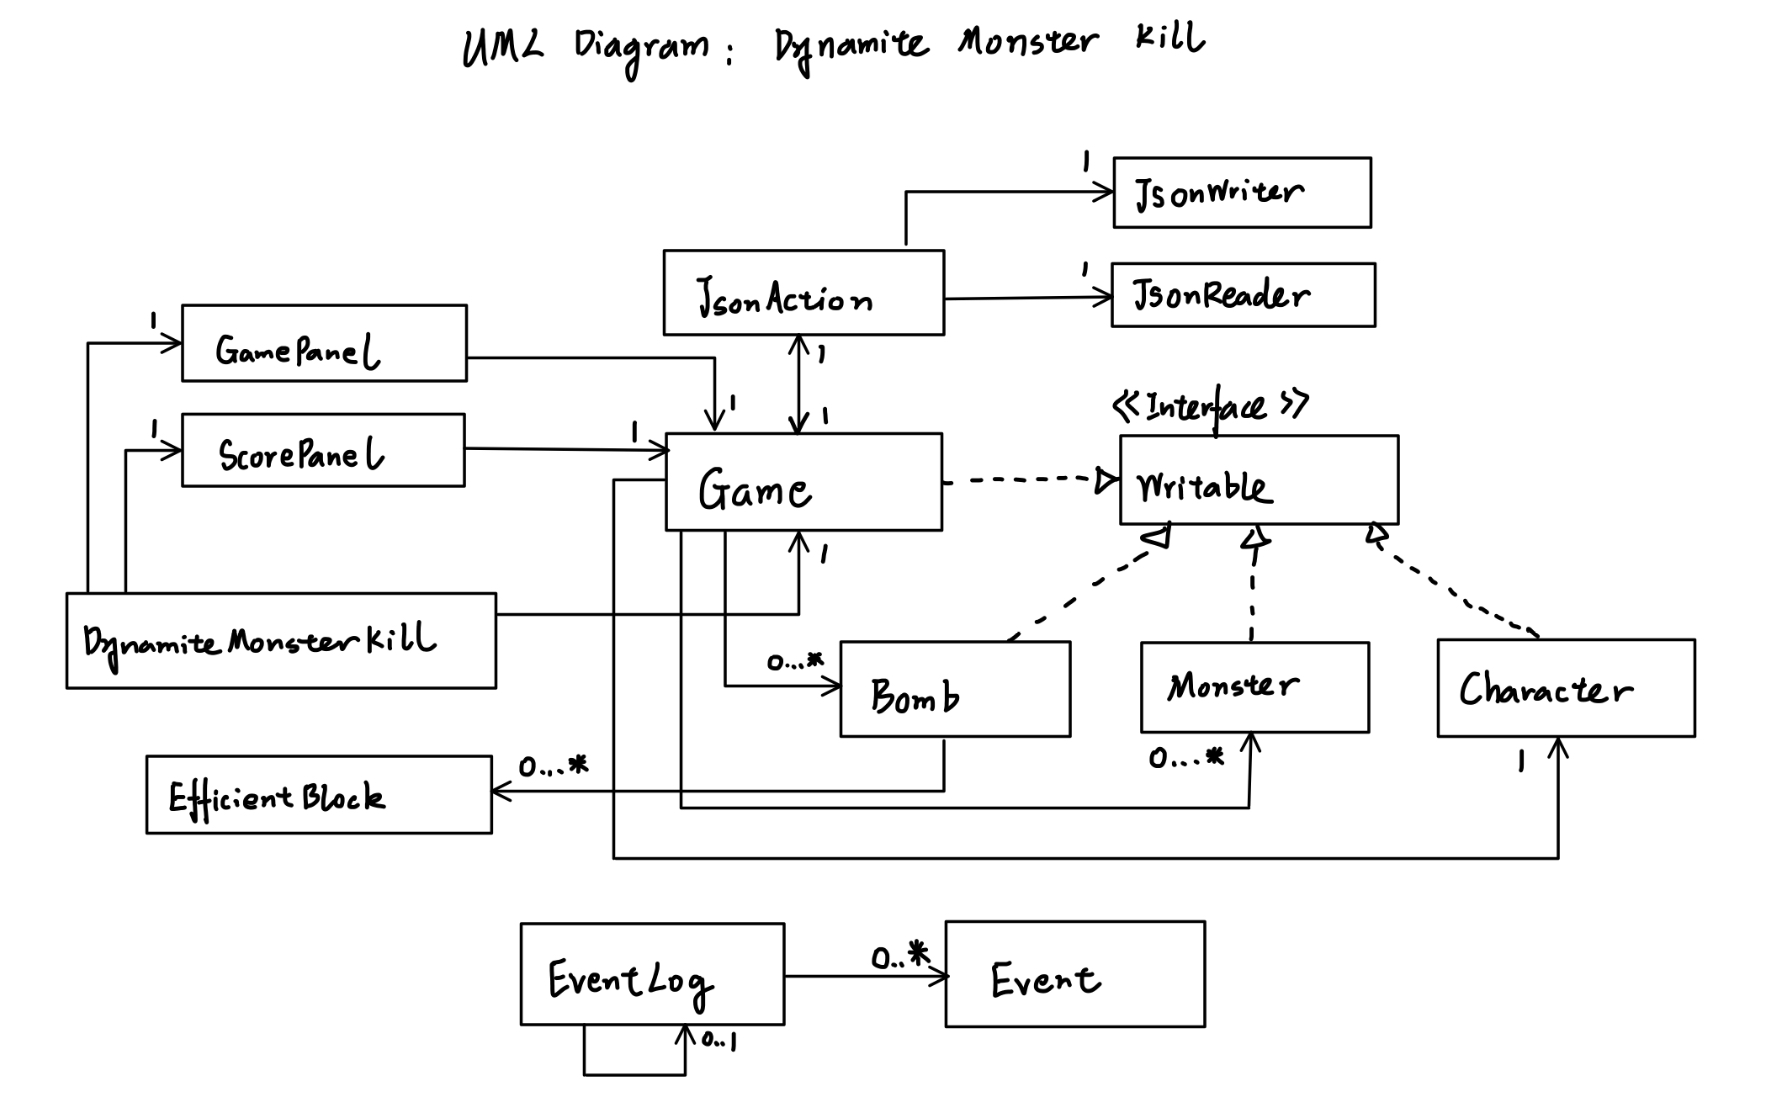 UML Diagram: Dynamite Monster Kill
1
JsonWriter
1
JsonReader
JsonAction
1
1
GamePanel
1
1
<<Interface>>
1
ScorePanel
1
Game
Writable
1
DynamiteMonsterKill
0...*
Bomb
Monster
Character
0...*
1
0...*
EfficientBlock
EventLog
0..*
Event
0..1